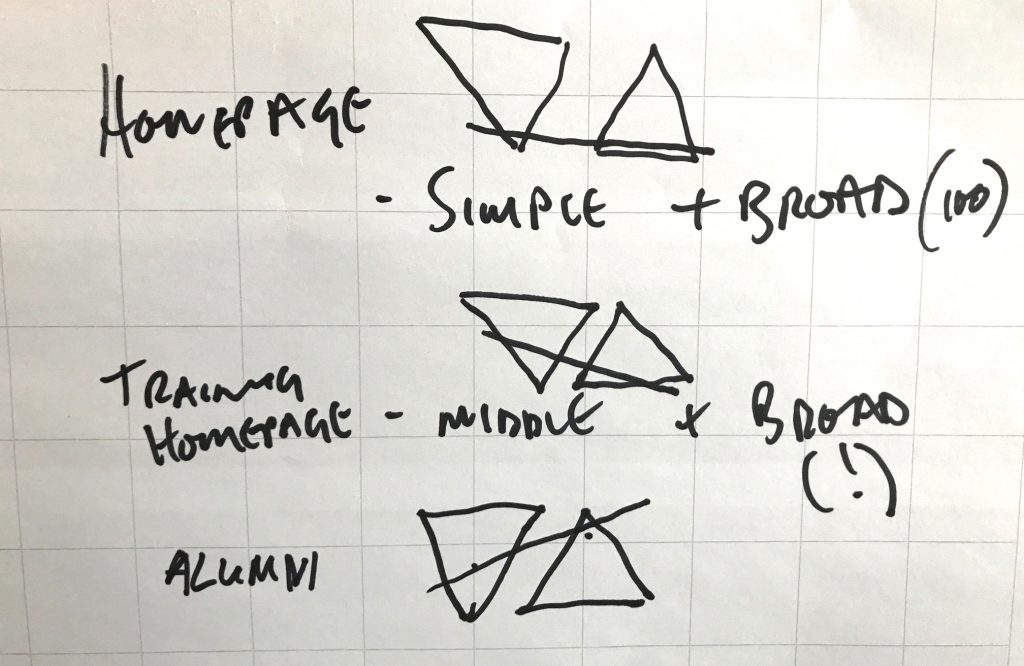 HOMEPAGE
- SIMPLE + BROAD (100)
TRAINING
HOMEPAGE - MIDDLE + BROAD
(!)
ALUMNI